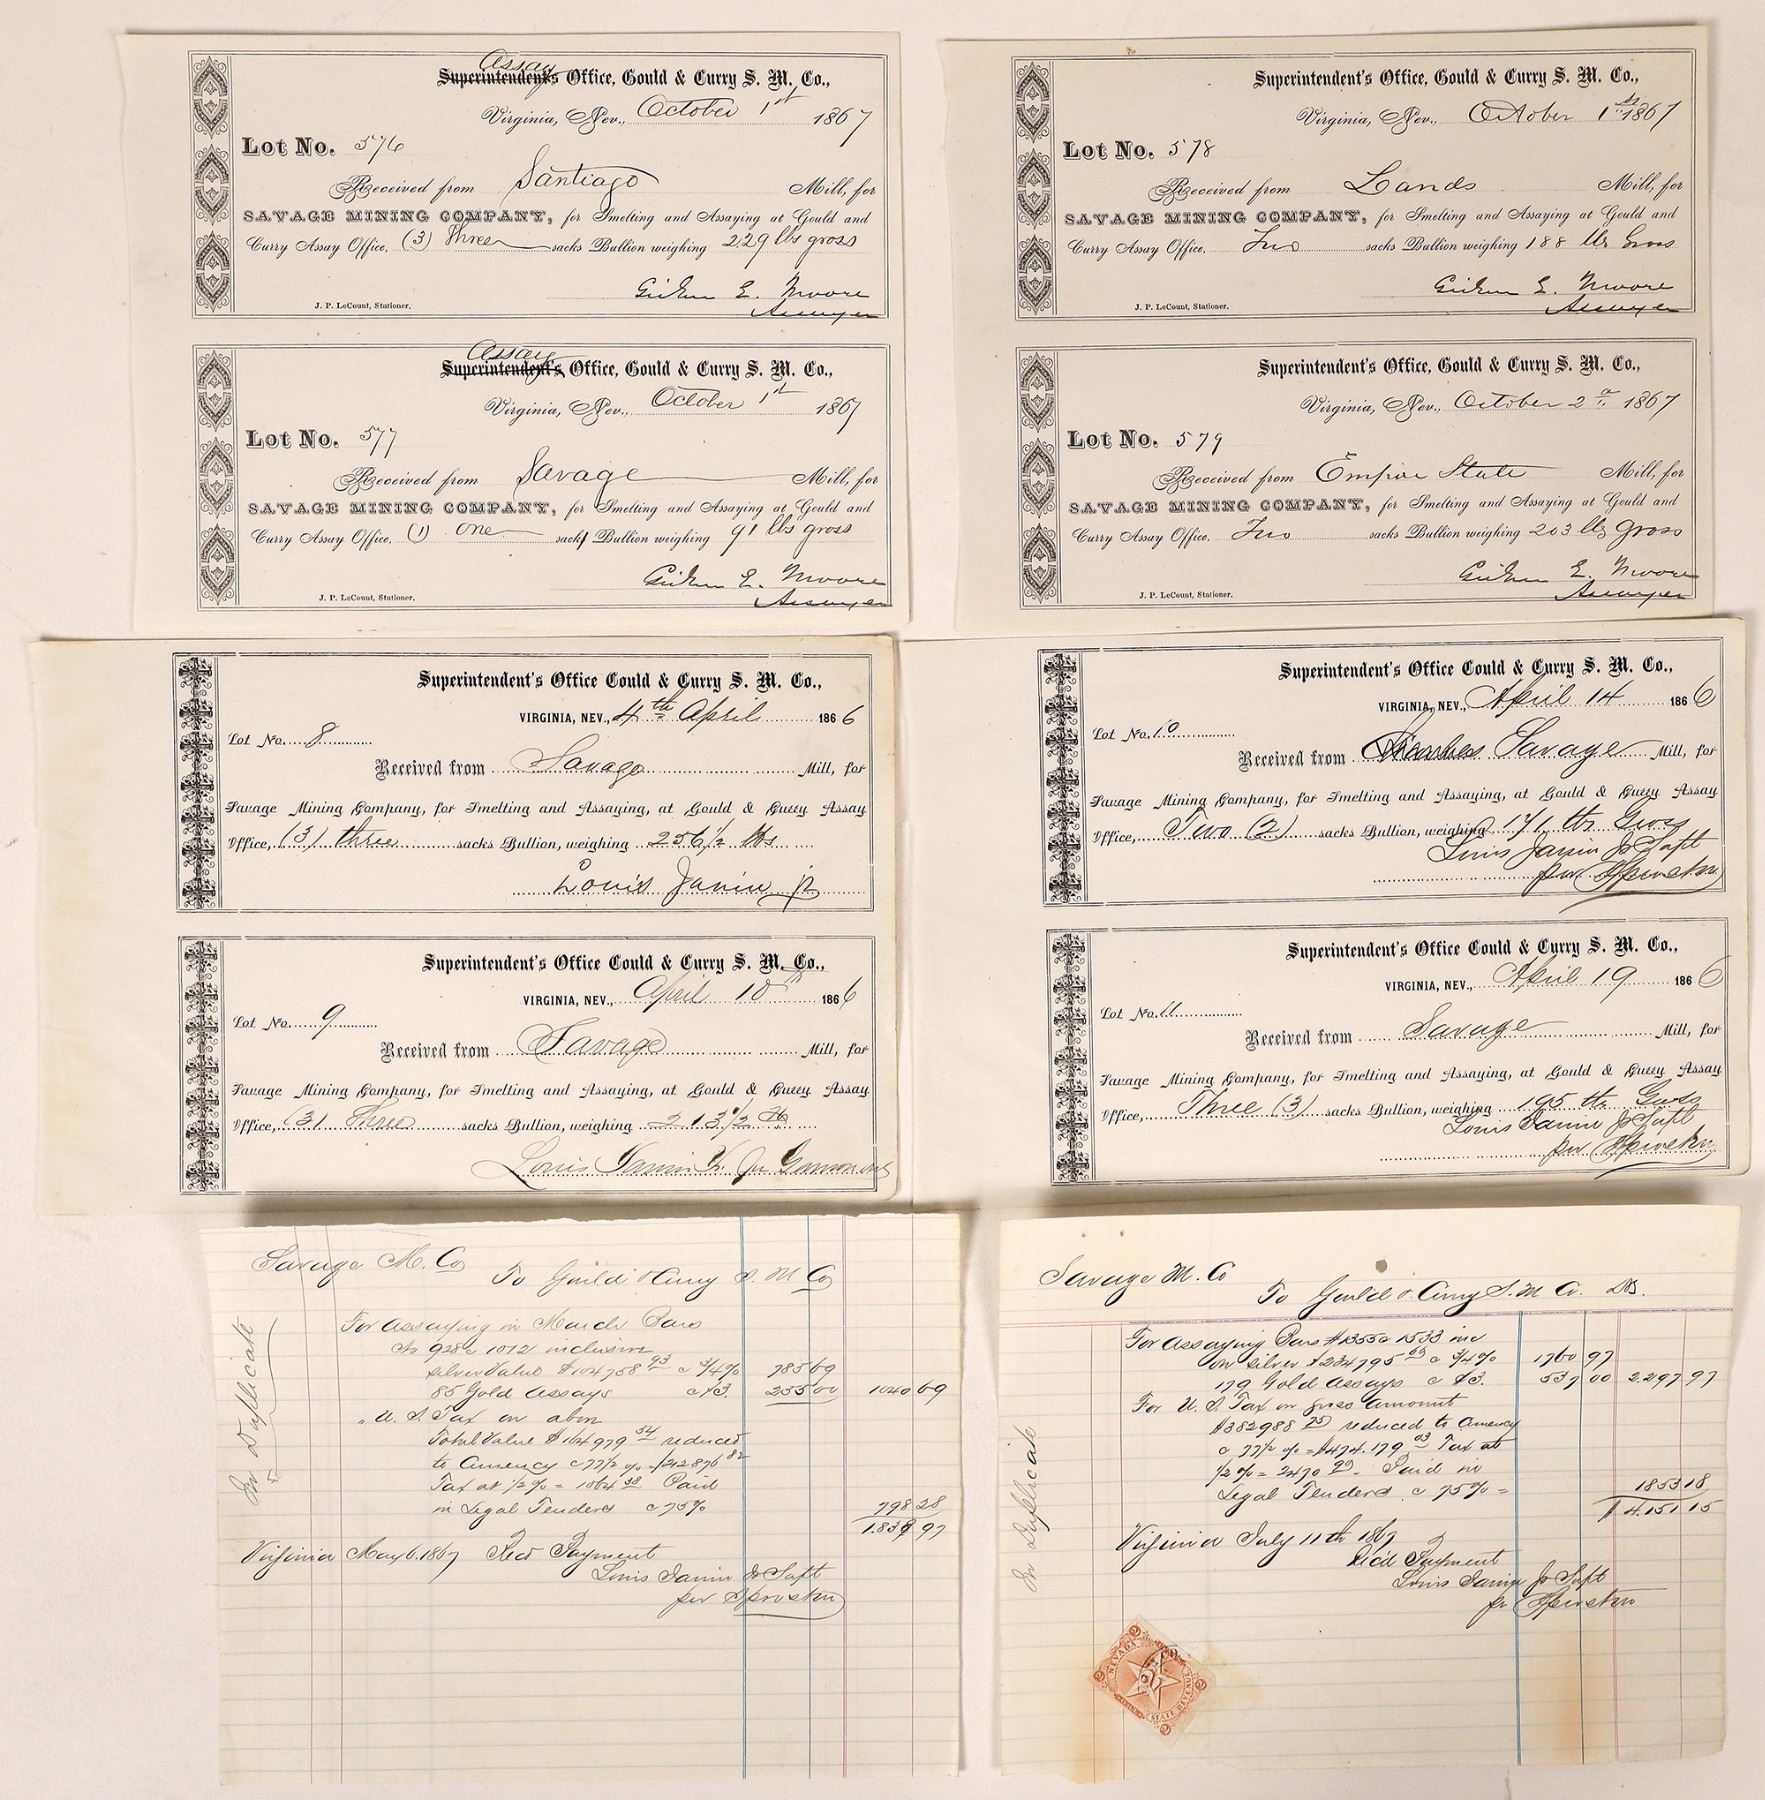 Assay
Superintendent's Office, Gould & Curry S. M. Co.,
Virginia, Nev., October 1st 1867
Lot No. 576
Received from Santiago Mill, for
SAVAGE MINING COMPANY, for Smelting and Assaying at Gould and
Curry Assay Office, (3) Three sacks Bullion weighing 229 lbs gross
E. Moore
Assayer
J. P. LeCount, Stationer.
Assay
Superintendent's Office, Gould & Curry S. M. Co.,
Virginia, Nev., October 1st 1867
Lot No. 577
Received from Savage Mill, for
SAVAGE MINING COMPANY, for Smelting and Assaying at Gould and
Curry Assay Office, (1) One sacks Bullion weighing 91 lbs gross
E. Moore
Assayer
J. P. LeCount, Stationer.
Superintendent's Office, Gould & Curry S. M. Co.,
Virginia, Nev., October 1st 1867
Lot No. 578
Received from Lands Mill, for
SAVAGE MINING COMPANY, for Smelting and Assaying at Gould and
Curry Assay Office, Two sacks Bullion weighing 188 lbs Gross
E. Moore
Assayer
J. P. LeCount, Stationer.
Superintendent's Office, Gould & Curry S. M. Co.,
Virginia, Nev., October 2d 1867
Lot No. 579
Received from Empire State Mill, for
SAVAGE MINING COMPANY, for Smelting and Assaying at Gould and
Curry Assay Office, Two sacks Bullion weighing 203 lbs gross
E. Moore
Assayer
J. P. LeCount, Stationer.
Superintendent's Office Gould & Curry S. M. Co.,
VIRGINIA, NEV., 4th April 1866
Lot No. 8
Received from Savage Mill, for
Savage Mining Company, for Smelting and Assaying, at Gould & Curry Assay
Office, (3) three sacks Bullion, weighing 256 1/2 lbs
Louis Janin jr
Superintendent's Office Gould & Curry S. M. Co.,
VIRGINIA, NEV., April 10th 1866
Lot No. 9
Received from Savage Mill, for
Savage Mining Company, for Smelting and Assaying, at Gould & Curry Assay
Office, (3) Three sacks Bullion, weighing 213 1/2 lb
Louis Janin Jr
Superintendent's Office Gould & Curry S. M. Co.,
VIRGINIA, NEV., April 14 1866
Lot No. 10
Received from Savage Mill, for
Savage Mining Company, for Smelting and Assaying, at Gould & Curry Assay
Office, Two (2) sacks Bullion, weighing 171 lbs Gross
Louis Janin Jr Supt
per
Superintendent's Office Gould & Curry S. M. Co.,
VIRGINIA, NEV., April 19 1866
Lot No. 11
Received from Savage Mill, for
Savage Mining Company, for Smelting and Assaying, at Gould & Curry Assay
Office, Three (3) sacks Bullion, weighing 195 lbs Gross
Louis Janin Jr Supt
per
Savage M. Co
To Gould & Curry S. M Co
In Duplicate
For Assaying in March Bars
No 928 @ 1012 inclusive
Silver Value $104758 93 @ 3/4% 785 69
85 Gold Assays @ $3 255 00 1040 69
" U. S. Tax on abov
Total Value $164979 54 reduced
to Currency @ 77 1/2 % = $212876 82
Tax at 1/2% = 1064 38 Paid
in Legal Tenders @ 75% 798 28
1.838 97
Virginia May 6. 1867 Recd Payment
Louis Janin Jr Supt
per
Savage M. Co
To Gould & Curry S. M Co. Drs.
In Duplicate
For Assaying Bars #1355 @ 1533 inc
on silver $234795 66 @ 3/4% 1760 97
179 Gold Assays @ $3. 537 00 2.297 97
For U. S. Tax on gross amount
$382988 75 reduced to Currency
@ 77 1/2 % = $494.179 03 Tax at
1/2% = 2470 90 Paid in
Legal Tenders @ 75% = 1853 18
$4.151 15
Virginia July 11th 1867
Rec'd Payment
Louis Janin Jr Supt
pr
NEVADA
STATE REVENUE
2
2
2
2